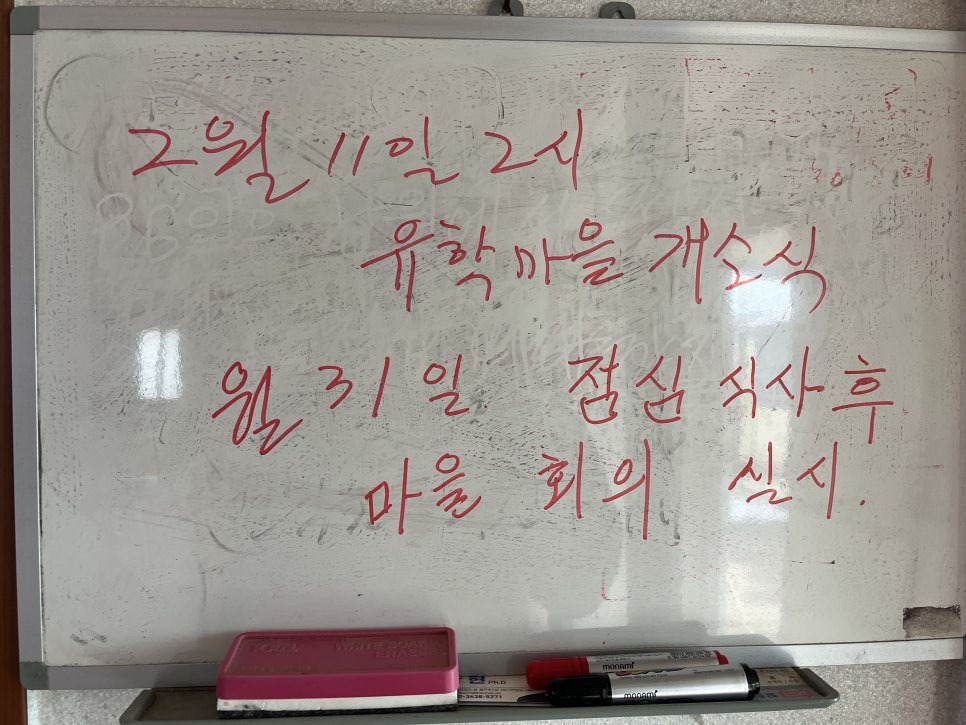 2월 11일 2시
유학마을 개소식
월 31일 점심 식사 후
마을 회의 실시.
WHITE BOARD ERASER
Ph.D
monami
monami